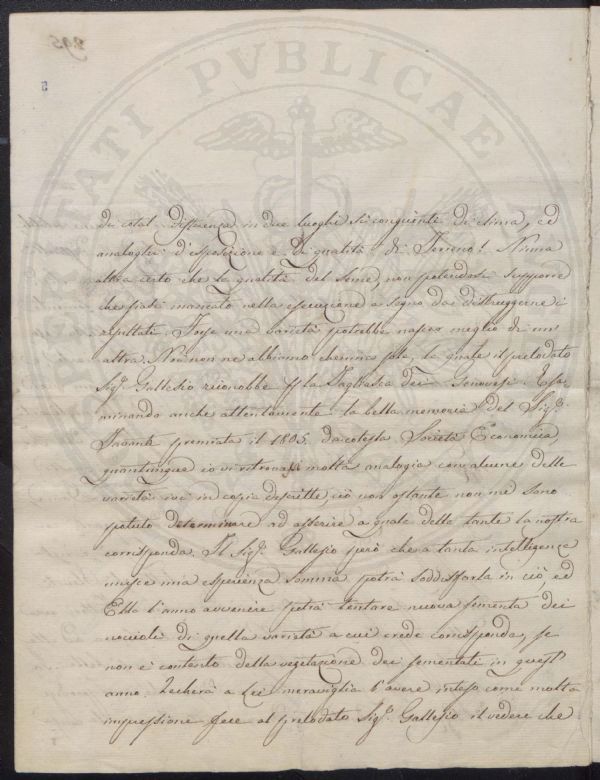 di cotal differenza in due luoghi sì congiunti di clima, ed
analoghi d'esposizione e di qualità di Terreno! Niuna
altra certo che la qualità del seme, non potendosi supporre
che siasi mancato nella esecuzione a segno da distruggerne i
risultati. Forse una varietà potrebbe nascer meglio di un'
altra. Noi non ne abbiamo che una sola, la quale il prelodato
Sig.r Gallesio riconobbe p la Tagliasca dei Genovesi. Esa=
minando anche attentamente la bella memoria del Sig.r
Tavanti premiata il 1805. da cotesta Società Economica,
quantunque io vi ritrovassi molta analogia con alcune delle
varietà ivi in copia descritte, ciò non ostante non ne sono
potuto determinare ad asserire a quale delle tante la nostra
corrisponda. Il Sig.r Gallesio però che a tanta intelligenza
unisce una esperienza somma potrà soddisfarla in ciò, ed
Ella l'anno avvenire potrà tentare nuova sementa dei
noccioli di quella varietà a cui crede corrisponda, se
non è contento della vegetazione dei sementati in quest'
anno. Recherà a Lei meraviglia l'avere inteso come molta
impressione fece al prelodato Sig.r Gallesio il vedere che
PUBLICAE